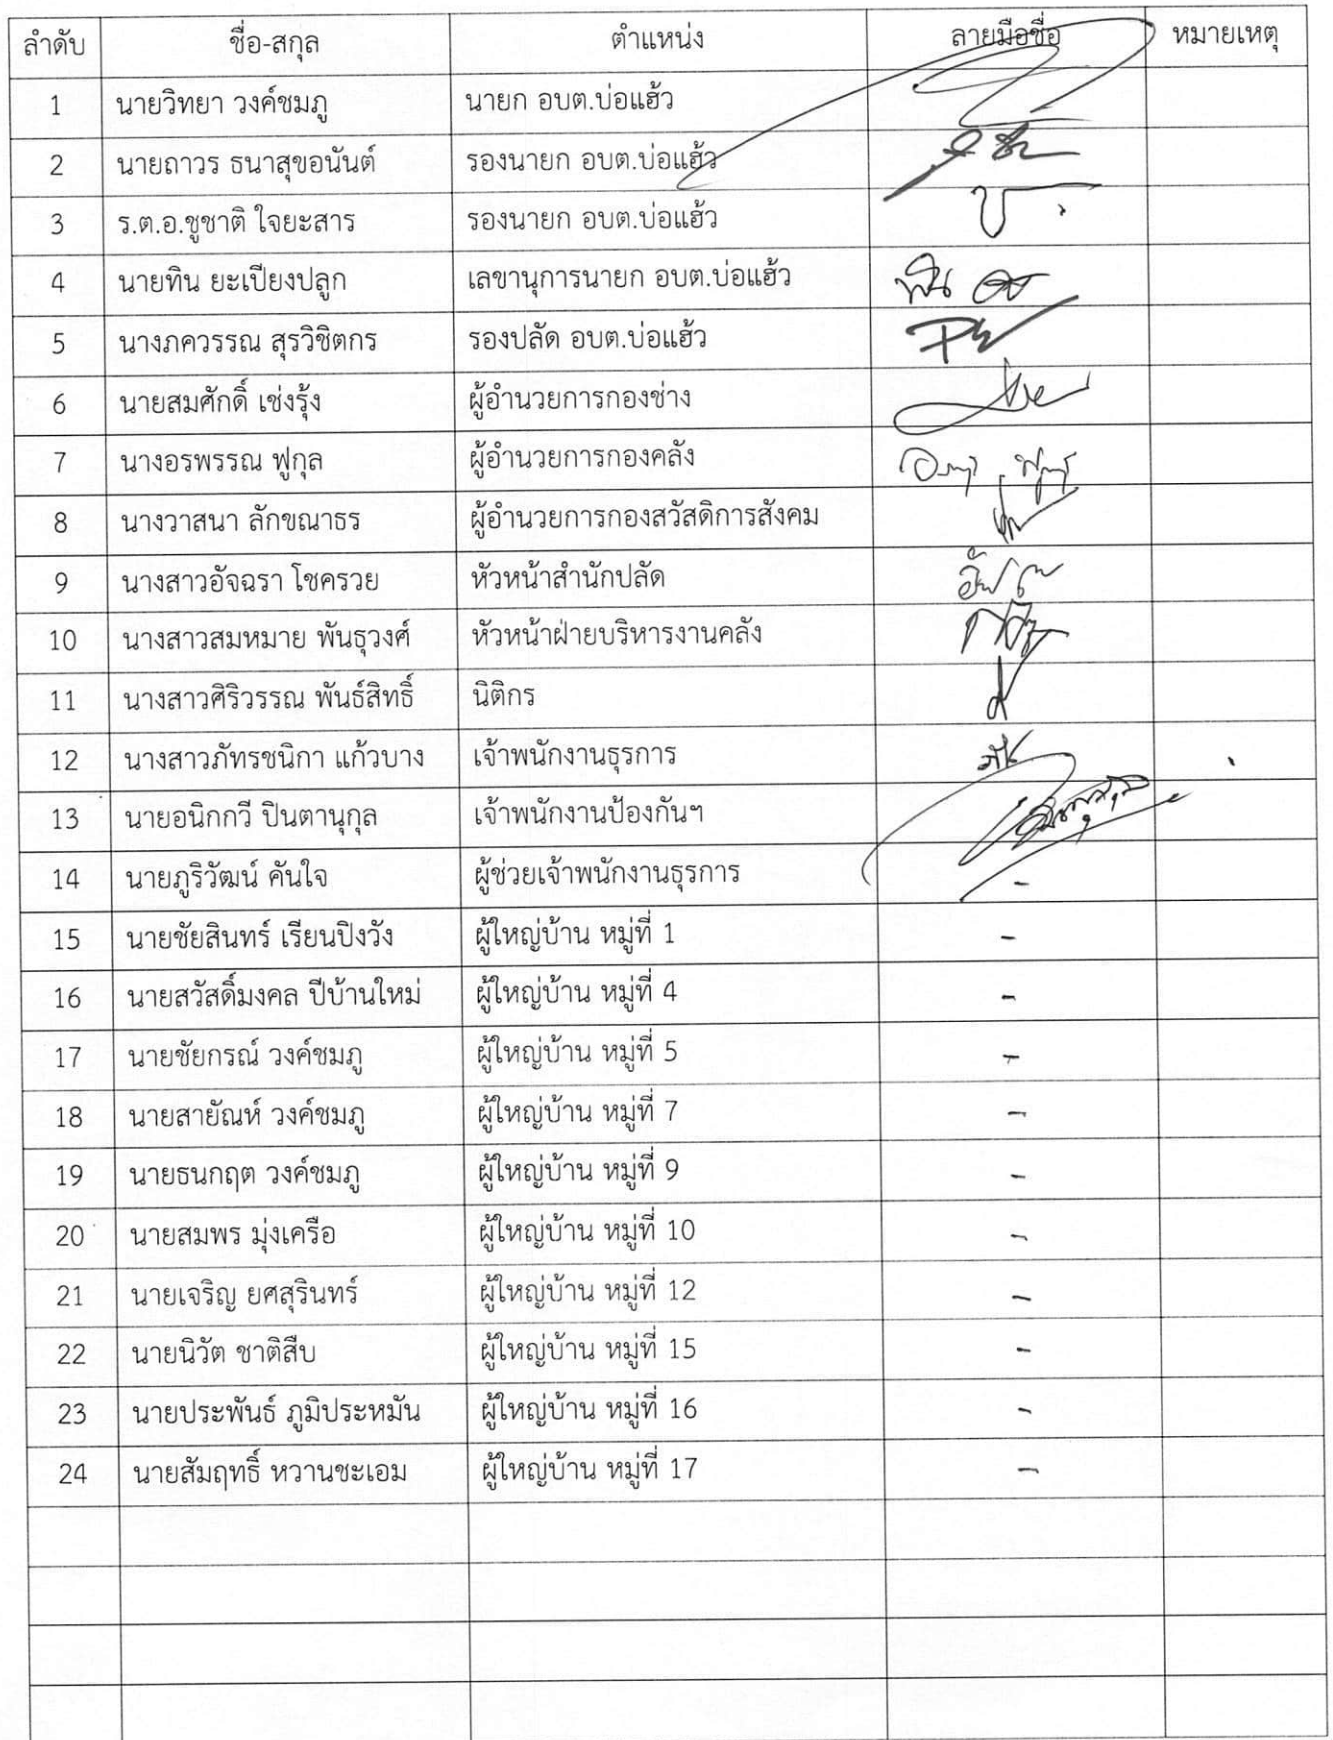 ลำดับ ชื่อ-สกุล ตำแหน่ง ลายมือชื่อ หมายเหตุ
1 นายวิทยา วงค์ชมภู นายก อบต.บ่อแฮ้ว
2 นายถาวร ธนาสุขอนันต์ รองนายก อบต.บ่อแฮ้ว
3 ร.ต.อ.ชูชาติ ใจยะสาร รองนายก อบต.บ่อแฮ้ว
4 นายทิน ยะเปียงปลูก เลขานุการนายก อบต.บ่อแฮ้ว
5 นางภควรรณ สุรวิชิตกร รองปลัด อบต.บ่อแฮ้ว
6 นายสมศักดิ์ เช่งรุ้ง ผู้อำนวยการกองช่าง
7 นางอรพรรณ ฟูกุล ผู้อำนวยการกองคลัง
8 นางวาสนา ลักขณาธร ผู้อำนวยการกองสวัสดิการสังคม
9 นางสาวอัจฉรา โชครวย หัวหน้าสำนักปลัด
10 นางสาวสมหมาย พันธุวงศ์ หัวหน้าฝ่ายบริหารงานคลัง
11 นางสาวศิริวรรณ พันธ์สิทธิ์ นิติกร
12 นางสาวภัทรชนิกา แก้วบาง เจ้าพนักงานธุรการ
13 นายอนิกกวี ปินตานุกุล เจ้าพนักงานป้องกันฯ
14 นายภูริวัฒน์ คันใจ ผู้ช่วยเจ้าพนักงานธุรการ -
15 นายชัยสินทร์ เรียนปิงวัง ผู้ใหญ่บ้าน หมู่ที่ 1 -
16 นายสวัสดิ์มงคล ปีบ้านใหม่ ผู้ใหญ่บ้าน หมู่ที่ 4 -
17 นายชัยกรณ์ วงค์ชมภู ผู้ใหญ่บ้าน หมู่ที่ 5 -
18 นายสายัณห์ วงค์ชมภู ผู้ใหญ่บ้าน หมู่ที่ 7 -
19 นายธนกฤต วงค์ชมภู ผู้ใหญ่บ้าน หมู่ที่ 9 -
20 นายสมพร มุ่งเครือ ผู้ใหญ่บ้าน หมู่ที่ 10 -
21 นายเจริญ ยศสุรินทร์ ผู้ใหญ่บ้าน หมู่ที่ 12 -
22 นายนิวัต ชาติสืบ ผู้ใหญ่บ้าน หมู่ที่ 15 -
23 นายประพันธ์ ภูมิประหมัน ผู้ใหญ่บ้าน หมู่ที่ 16 -
24 นายสัมฤทธิ์ หวานชะเอม ผู้ใหญ่บ้าน หมู่ที่ 17 -